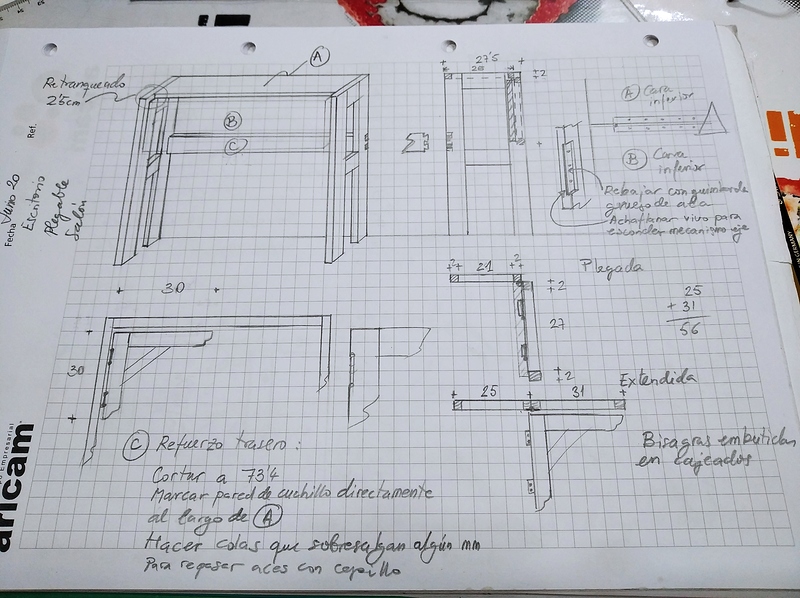 Retranqueado
2'5cm
A
B
C
27'5
2
A Cara
inferior
B Cara
inferior
Rebajar con guimbarda
grueso de ala
Achaflanar vivo para
esconder mecanismo eje
Ref.
Fecha Junio 20
Escritorio
Plegable
Salón
30
30
2 21 2
2
27
2
Plegada
25
+ 31
56
25 31
Extendida
Bisagras embutidas
en cajeados
C Refuerzo trasero:
Cortar a 73'4
Marcar pared de cuchillo directamente
al largo de A
Hacer colas que sobresalgan algún mm
Para repasar aces con cepillo
Empresarial
aricam